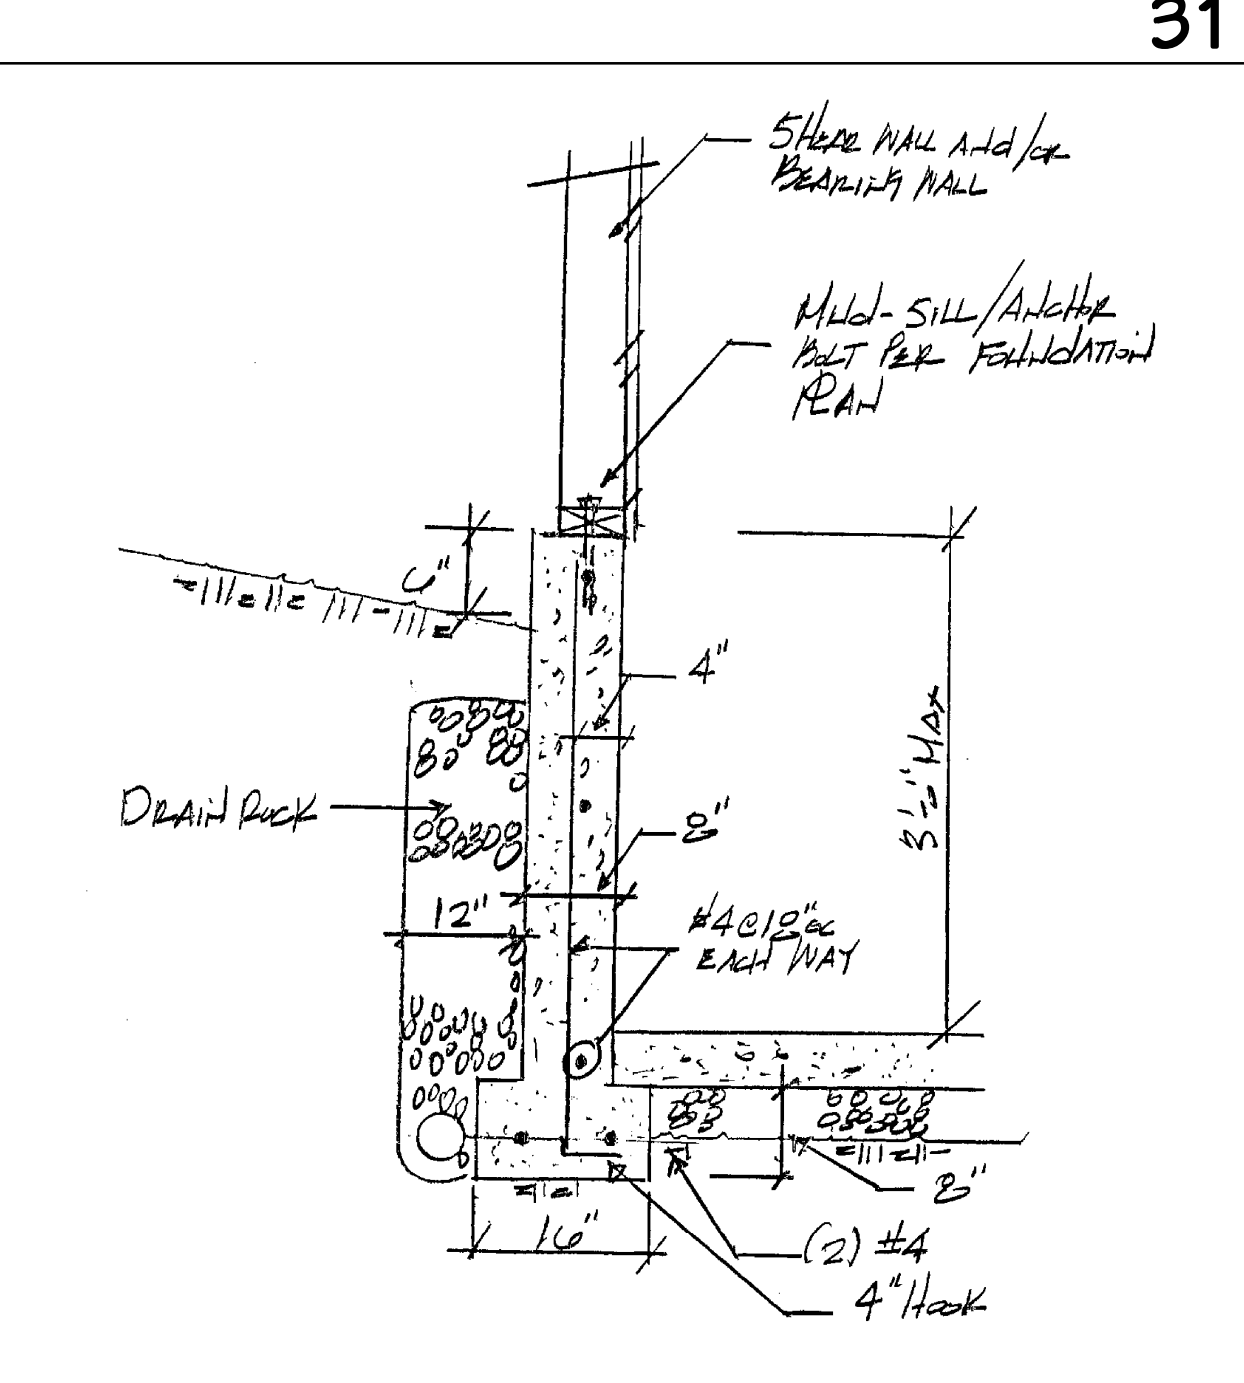 31
SHEAR WALL AND/OR
BEARING WALL
MUD-SILL/ANCHOR
BOLT PER FOUNDATION
PLAN
6"
4"
3'-0" MAX
DRAIN ROCK
8"
12"
#4@18"oc
EACH WAY
8"
16"
(2) #4
4" HOOK